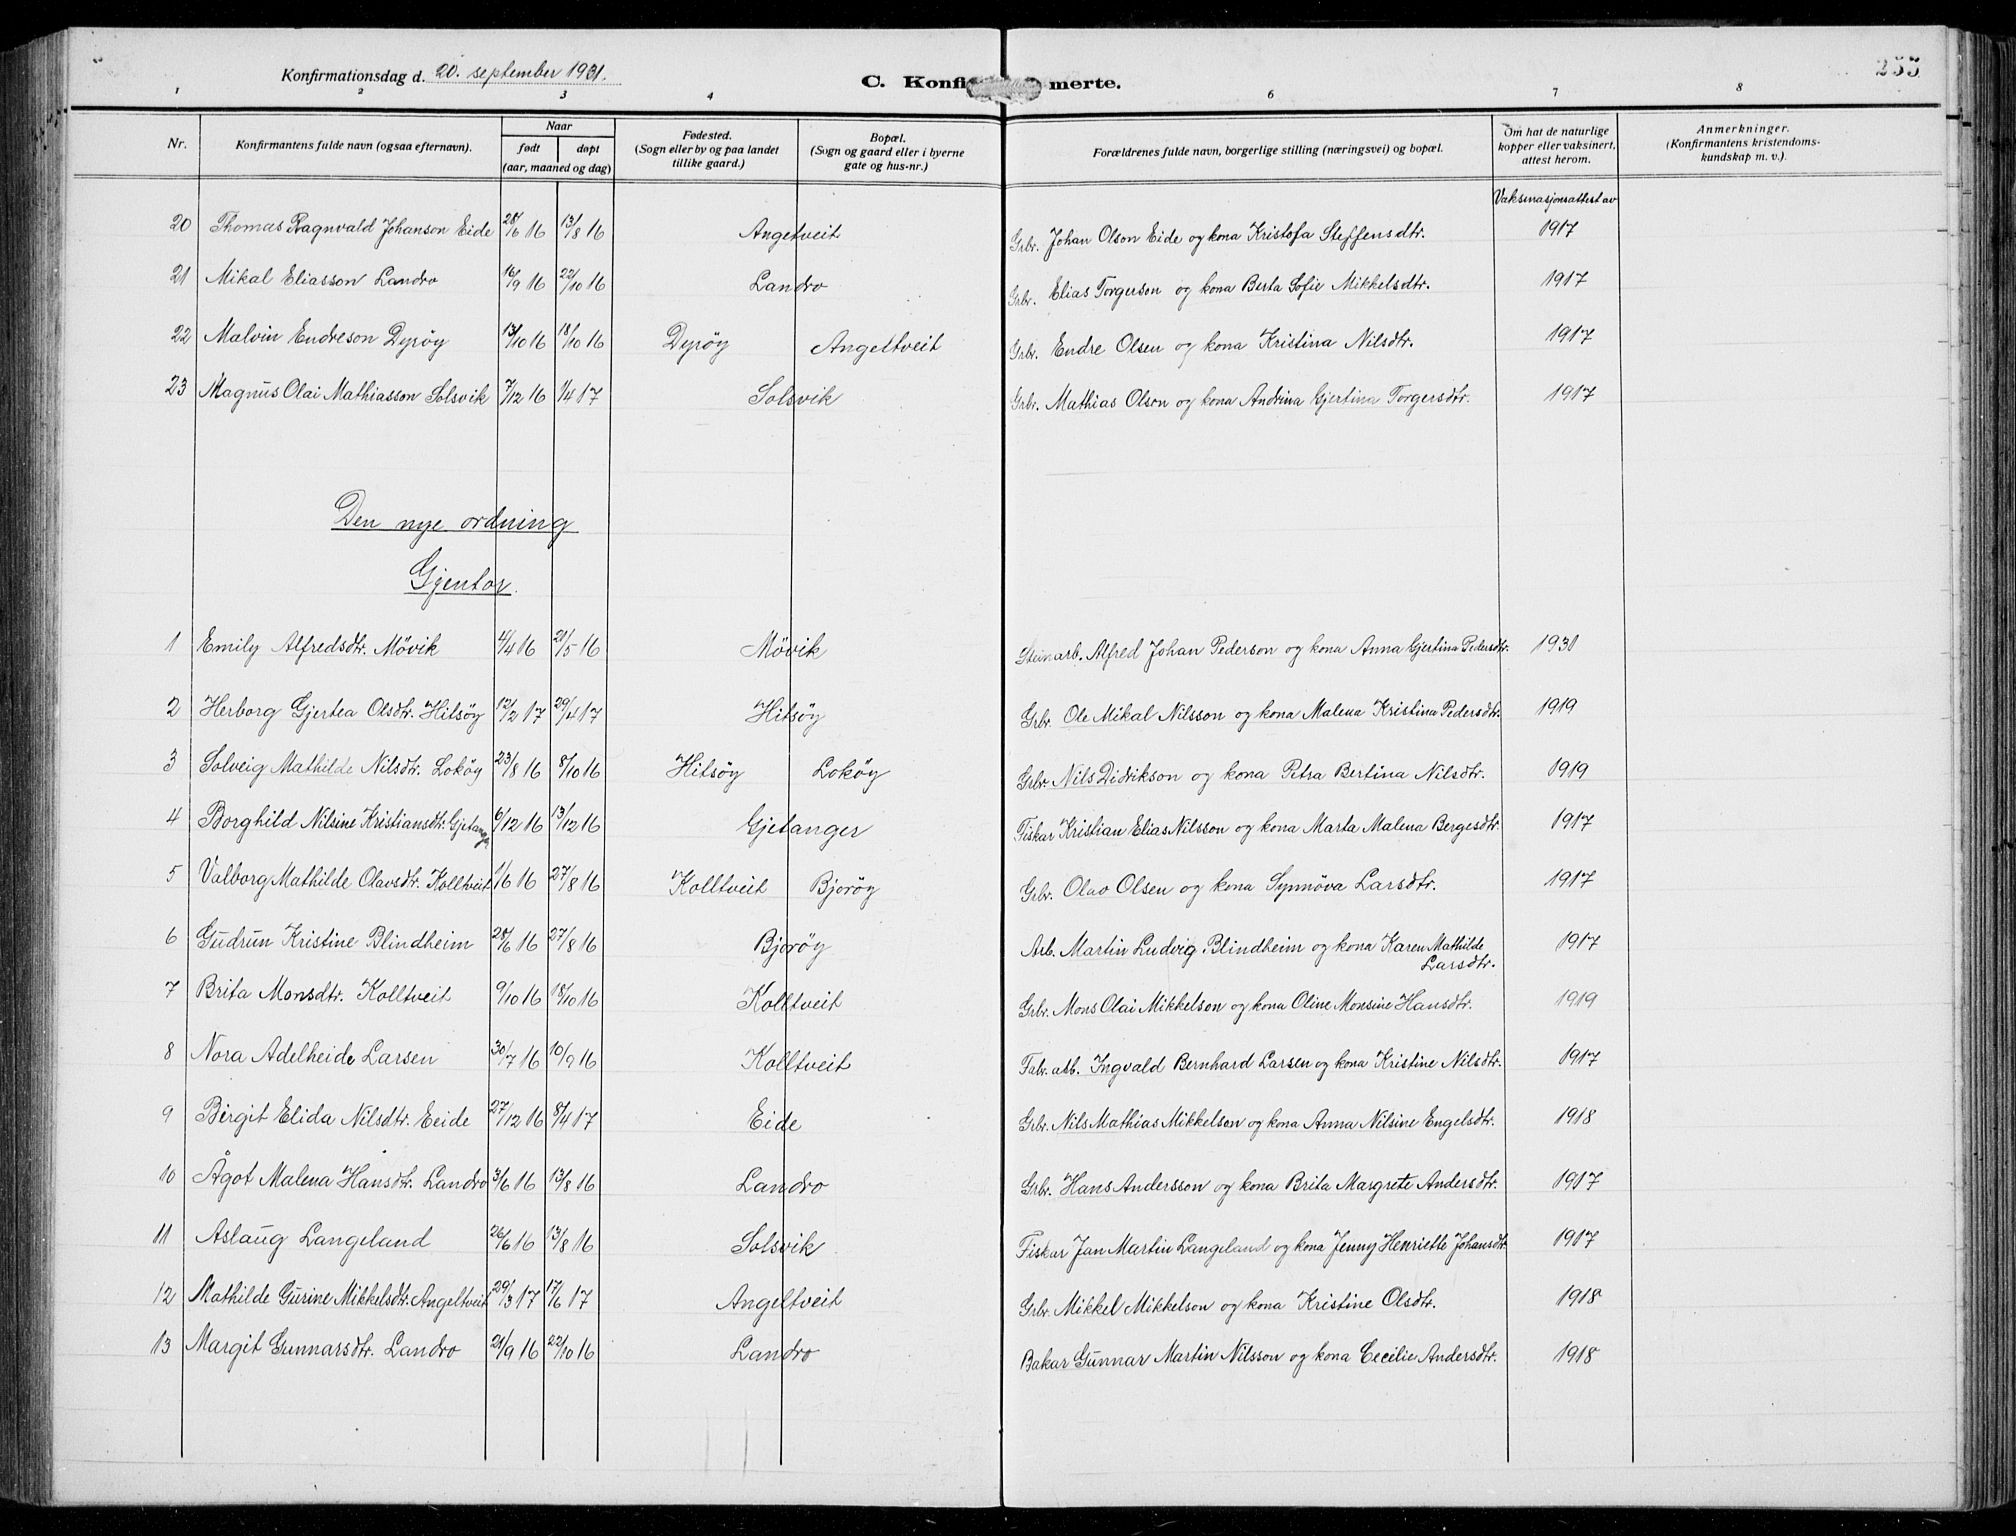 Konfirmationsdag d. 20. september 1931. C. Konfi merte. 255
1 2 3 4 6 7 8
Nr. Konfirmantens fulde navn (ogsaa efternavn). Naar født døpt (aar, maaned og dag) Fødested. (Sogn eller by og paa landet tillike gaard.) Bopæl. (Sogn og gaard eller i byerne gate og hus-nr.) Forældrenes fulde navn, borgerlige stilling (næringsvei) og bopæl. Om hat de naturlige kopper eller vaksinert, attest herom. Anmerkninger. (Konfirmantens kristendoms-kundskap m. v.).
Vaksinasjonsattest av
20 Thomas Ragnvald Johanson Eide 28/6 16 13/8 16 Angetveit Grbr. Johan Olson Eide og kona Kristofa Steffensdtr. 1917
21 Mikal Eliasson Landro 16/9 16 22/10 16 Landro Grbr. Elias Torgerson og kona Berta Sofie Mikkelsdtr. 1917
22 Malvin Endreson Dyrøy 13/10 16 18/10 16 Dyrøy Angeltveit Grbr. Endre Olsen og kona Kristina Nilsdtr. 1917
23 Magnus Olai Mathiasson Solsvik 7/12 16 1/4 17 Solsvik Grbr. Mathias Olson og kona Andrina Gjertina Torgersdtr. 1917
Den nye ordning
Gjentor.
1 Emily Alfredsdtr. Møvik 4/4 16 21/5 16 Møvik Steinarb. Alfred Johan Pederson og kona Anna Gjertina Pedersdtr. 1930
2 Herborg Gjertea Olsdtr. Hitsøy 12/2 17 29/4 17 Hitsøy Grbr. Ole Mikal Nilsson og kona Malena Kristina Pedersdtr. 1919
3 Solveig Mathilde Nilsdtr. Lokøy 23/8 16 8/10 16 Hitsøy Lokøy Grbr. Nils Didrikson og kona Petra Bertina Nilsdtr. 1919
4 Borghild Nilsine Kristiansdtr. Gjetanger 6/12 16 13/12 16 Gjetanger Fiskar Kristian Elias Nilsson og kona Marta Malena Bergesdtr. 1917
5 Valborg Mathilde Olavsdtr. Kolltveit 1/6 16 27/8 16 Kolltveit Bjorøy Grbr. Olav Olsen og kona Synnøva Larsdtr. 1917
6 Gudrun Kristine Blindheim 28/6 16 27/8 16 Bjorøy Arb. Martin Ludvig Blindheim og kona Karen Mathilde Larsdtr. 1917
7 Brita Monsdtr. Kolltveit 9/10 16 18/10 16 Kolltveit Grbr. Mons Olai Mikkelson og kona Oline Monsine Hansdtr. 1919
8 Nora Adelheide Larsen 30/7 16 10/9 16 Kolltveit Fabr. arb. Ingvald Bernhard Larsen og kona Kristine Nilsdtr. 1917
9 Birgit Elida Nilsdtr. Eeide 27/12 16 8/4 17 Eide Grbr. Nils Mathias Mikkelson og kona Anna Nilsine Engelsdtr. 1918
10 Ågot Malena Hansdtr. Landro 3/6 16 13/8 16 Landro Grbr. Hans Andersson og kona Brita Margrete Andersdtr. 1917
11 Aslaug Langeland 26/6 16 13/8 16 Solsvik Fiskar Jan Martin Langeland og kona Jenny Henriette Johansdtr 1917
12 Mathilde Gurine Mikkelsdtr. Angeltveit 29/3 17 17/6 17 Angeltveit Grbr. Mikkel Mikkelson og kona Kristine Olsdtr. 1918
13 Margit Gunnarsdtr. Landro 21/9 16 22/10 16 Landro Bakar Gunnar Martin Nilsson og kona Cecilie Andersdtr. 1918